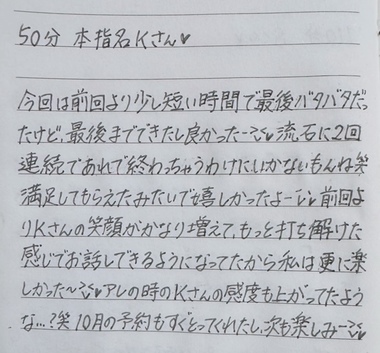 50分 本指名Kさん♥
今回は前回より少し短い時間で最後バタバタだっ
たけど、最後までできたし良かったー♥流石に2回
連続であれで終わっちゃうわけにいかないもんね笑
満足してもらえたみたいで嬉しかったよー♥前回よ
りKさんの笑顔がかなり増えて、もっと打ち解けた
感じでお話しできるようになってたから私は更に楽
しかった〜♥アレの時のKさんの感度も上がってたよう
な...?笑 10月の予約もすぐとってくれたし、次も楽しみー♥